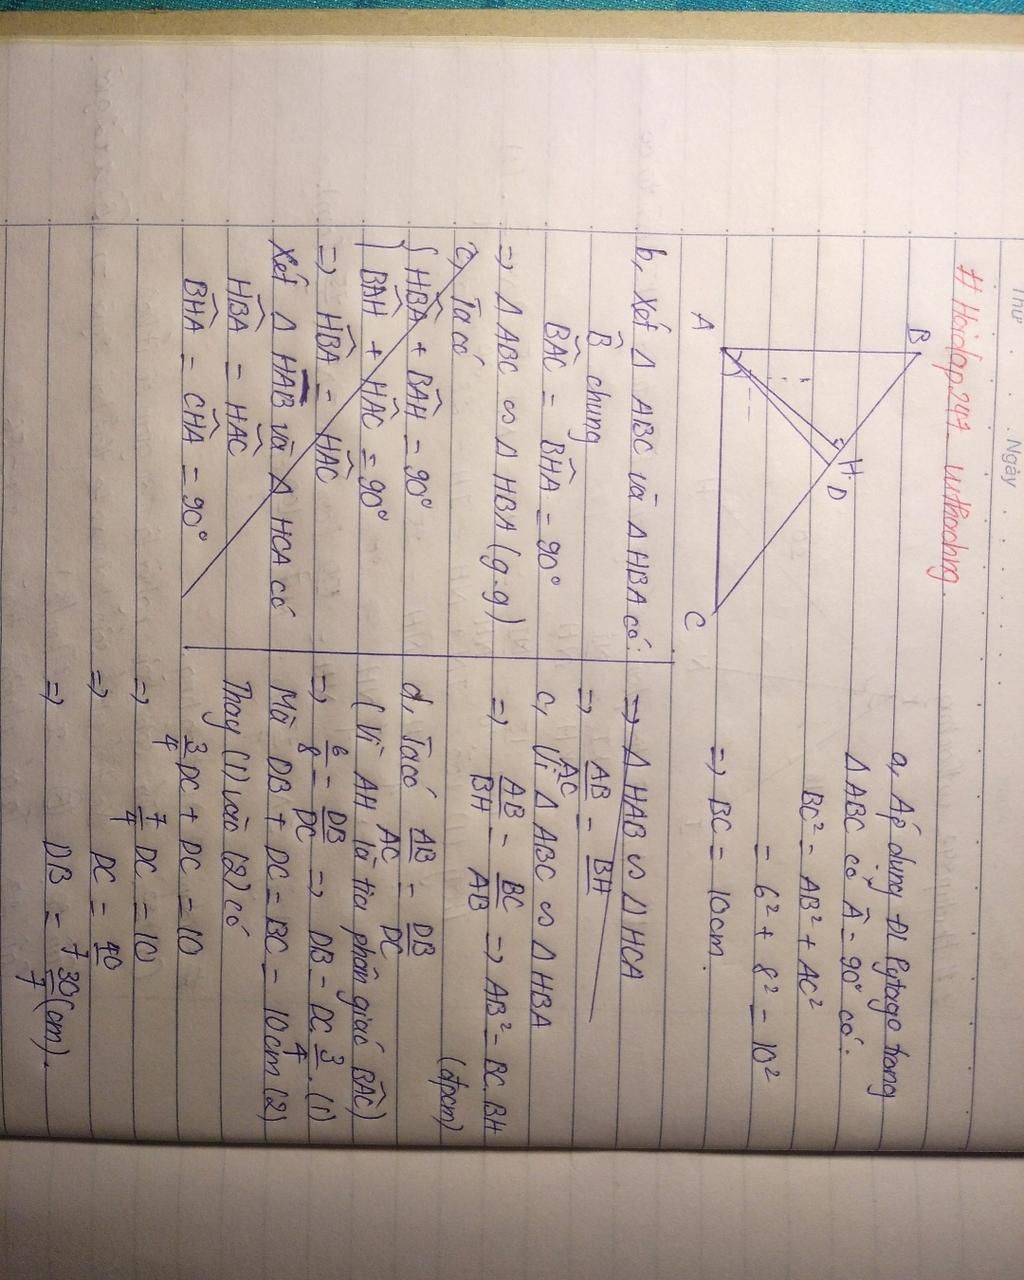 Thứ
Ngày
# Hoidap247_
B
H
D
A
C
a, Áp dụng ĐL Pytago trong
Δ ABC có Â = 90° có:
BC² = AB² + AC²
= 6² + 8² = 10²
=> BC = 10cm.
b, Xét Δ ABC và Δ HBA có:
B̂ chung
BAC = BHA = 90°
=> Δ ABC ∽ Δ HBA (g.g)
c, Ta có
{ HBA + BAH = 90°
BAH + HAC = 90°
=> HBA = HAC
Xét Δ HAB và Δ HCA có
HBA = HAC
BHA = CHA = 90°
=> Δ HAB ∽ Δ HCA
=> AB/AC = BH/
c, Vì Δ ABC ∽ Δ HBA
=> AB/BH = BC/AB => AB² = BC.BH
(đpcm)
d, Ta có AB/AC = DB/DC
(Vì AH là tia phân giác BAC)
=> 6/8 = DB/DC => DB = DC 3/4. (1)
Mà DB + DC = BC = 10cm (2)
Thay (1) vào (2) có
3/4 DC + DC = 10
=> 7/4 DC = 10
=> DC = 40/7
=> DB = 30/7 (cm).